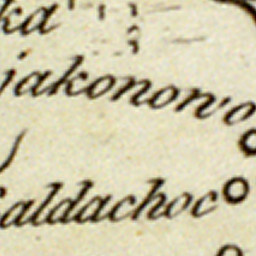 ka
jakonon'o
aldachoc